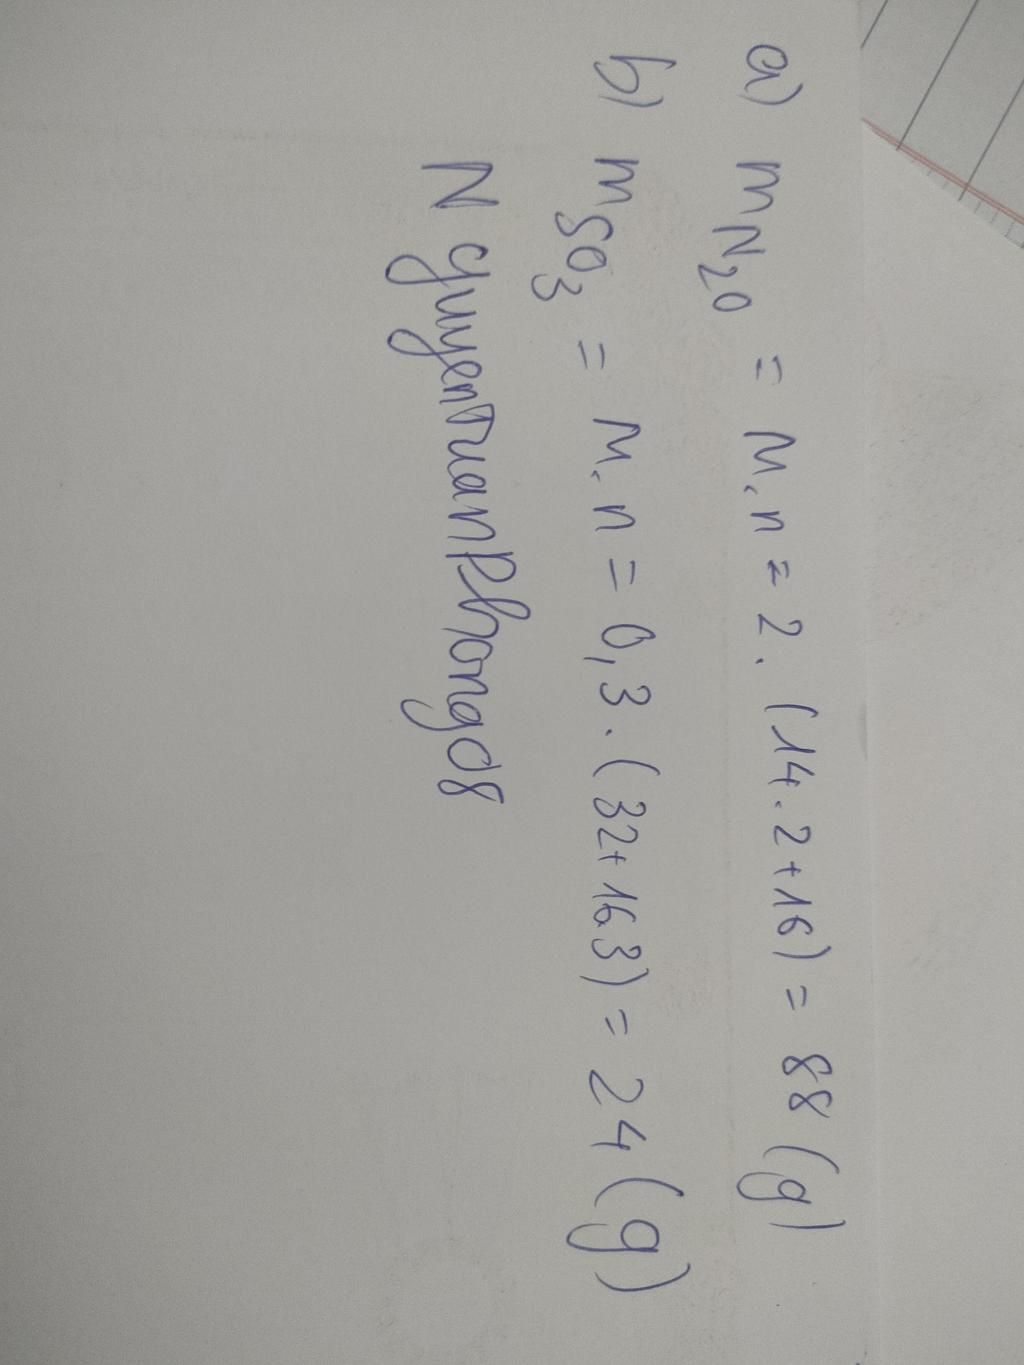 a) mN2O = M.n = 2.(14.2+16) = 88 (g)
b) mSO3 = M.n = 0,3.(32+16.3) = 24 (g)
NguyenTuanPhongd8